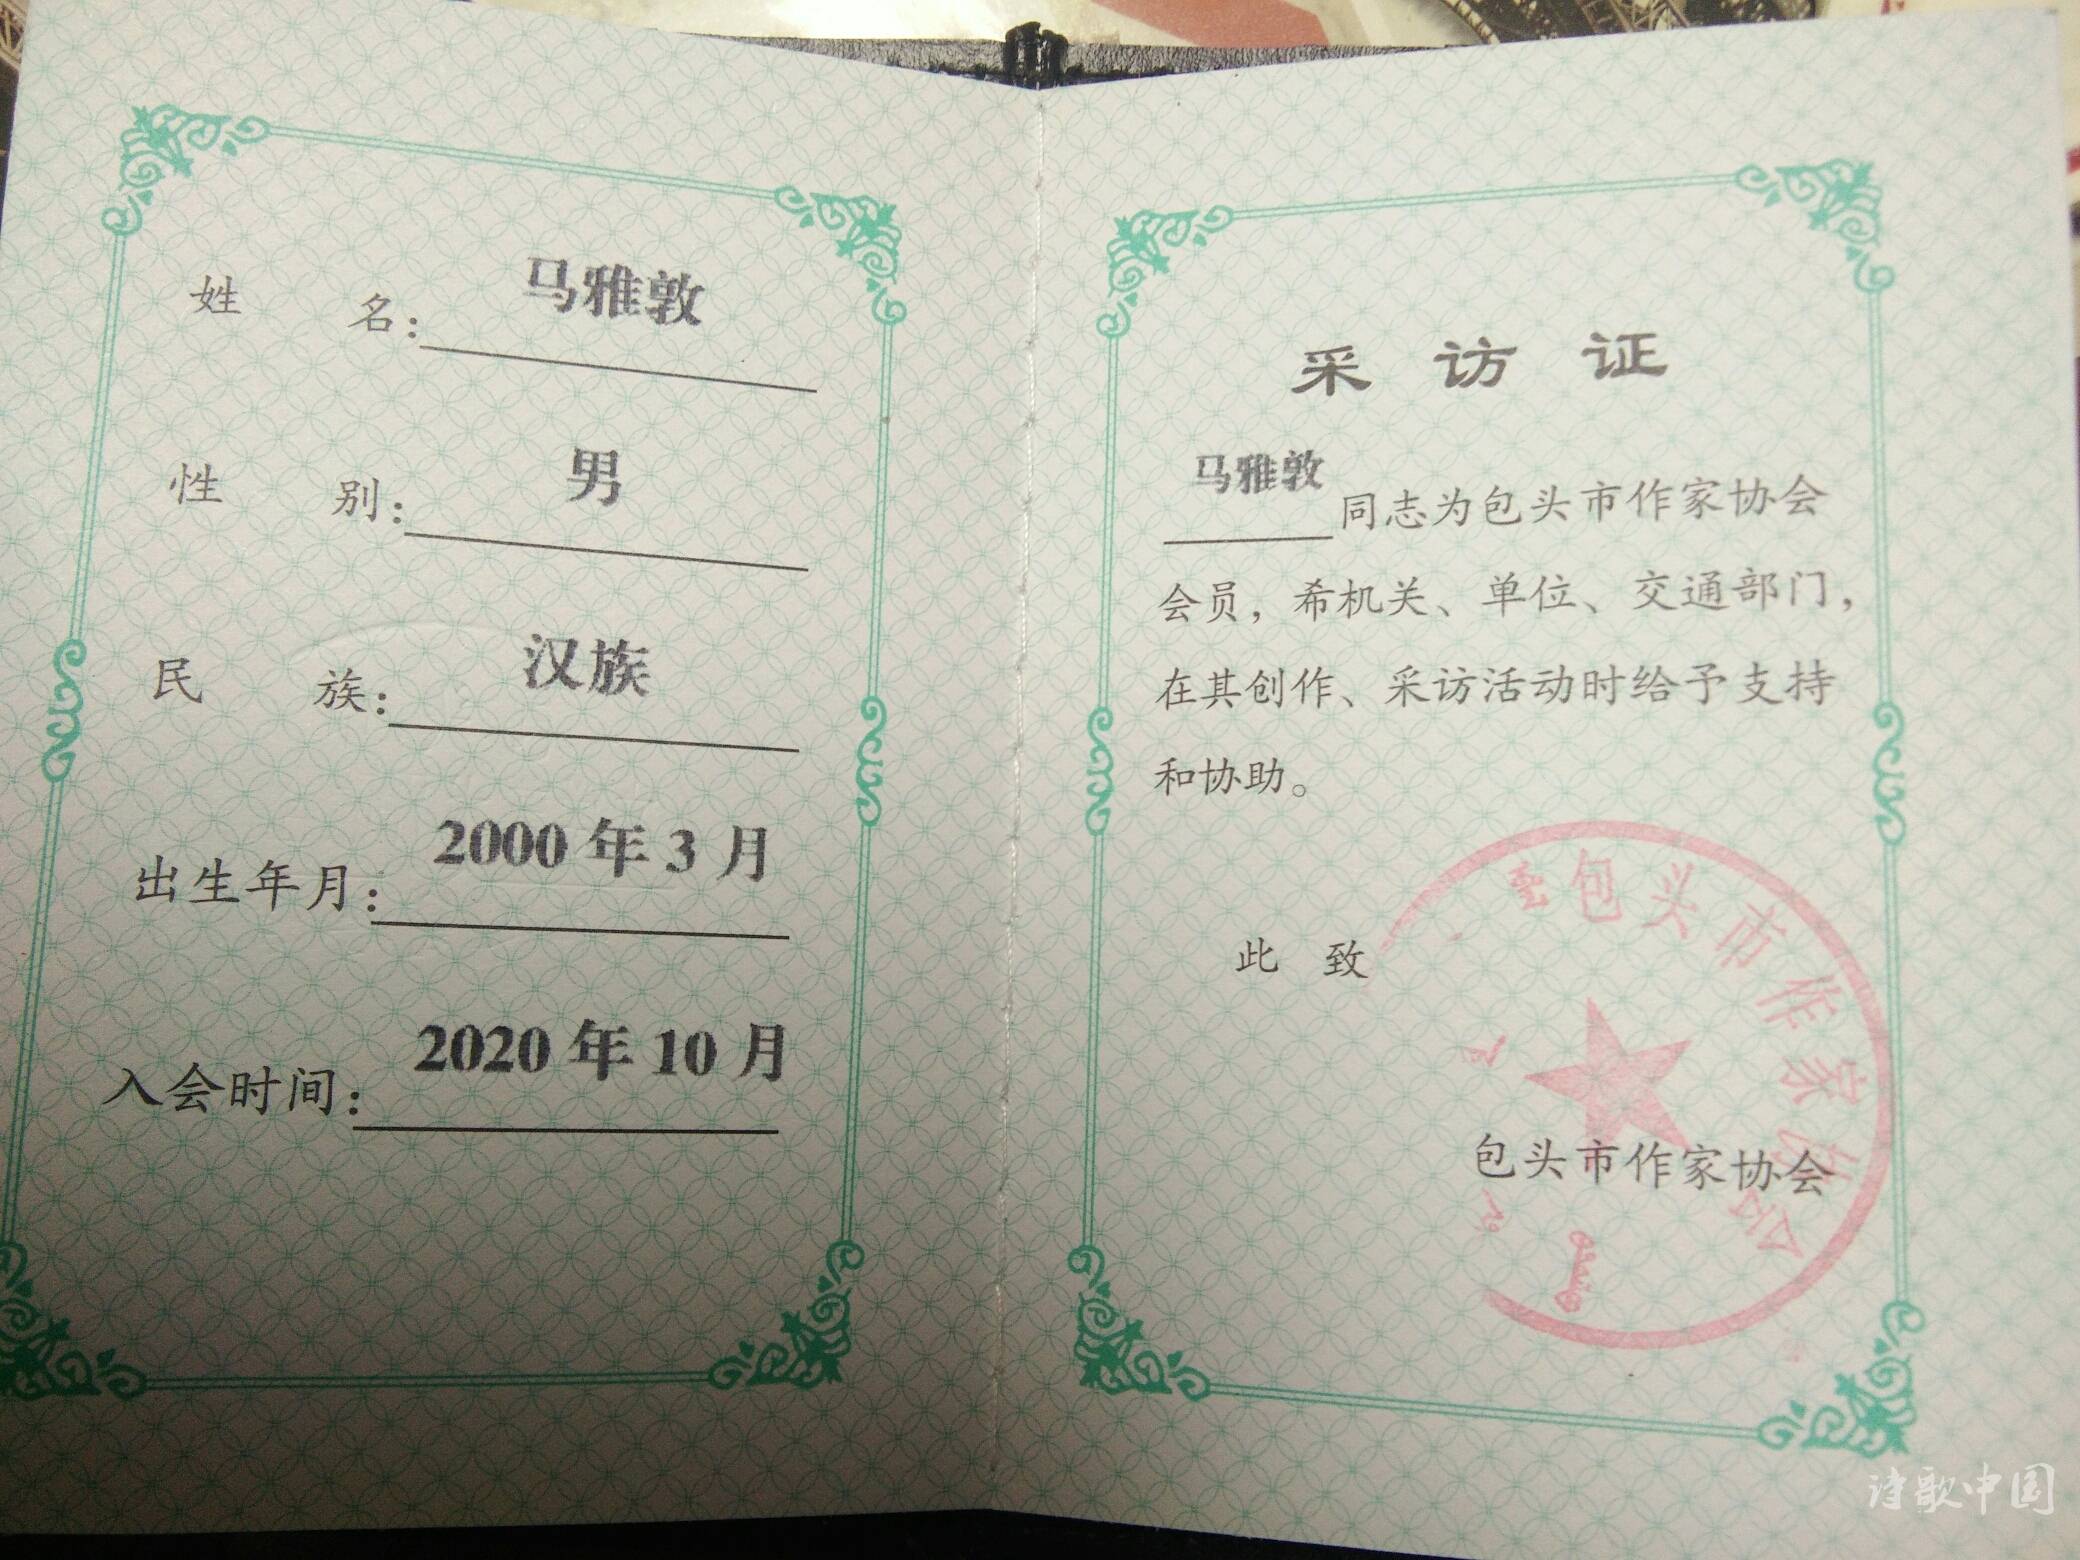 姓 名：马雅敦
性 别：男
民 族：汉族
出生年月：2000年3月
入会时间：2020年10月
采访证
马雅敦同志为包头市作家协会
会员，希机关、单位、交通部门，
在其创作、采访活动时给予支持
和协助。
此 致
包头市作家协会
包头市作家协会
诗歌中国